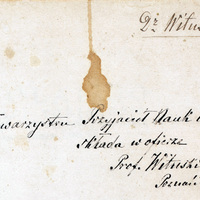 Dr Witus
warzystwu Przyjaciół Nauk
składa w ofierze
Prof. Wituski
Poznań